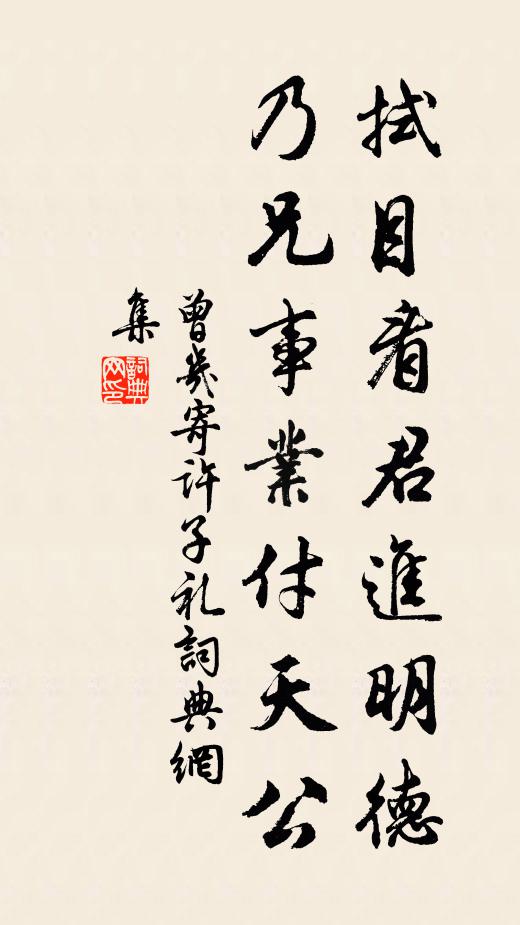 拭目看君進明德
乃兄事業付天公
曾幾寄許子礼詞典網
集
詞典
网印